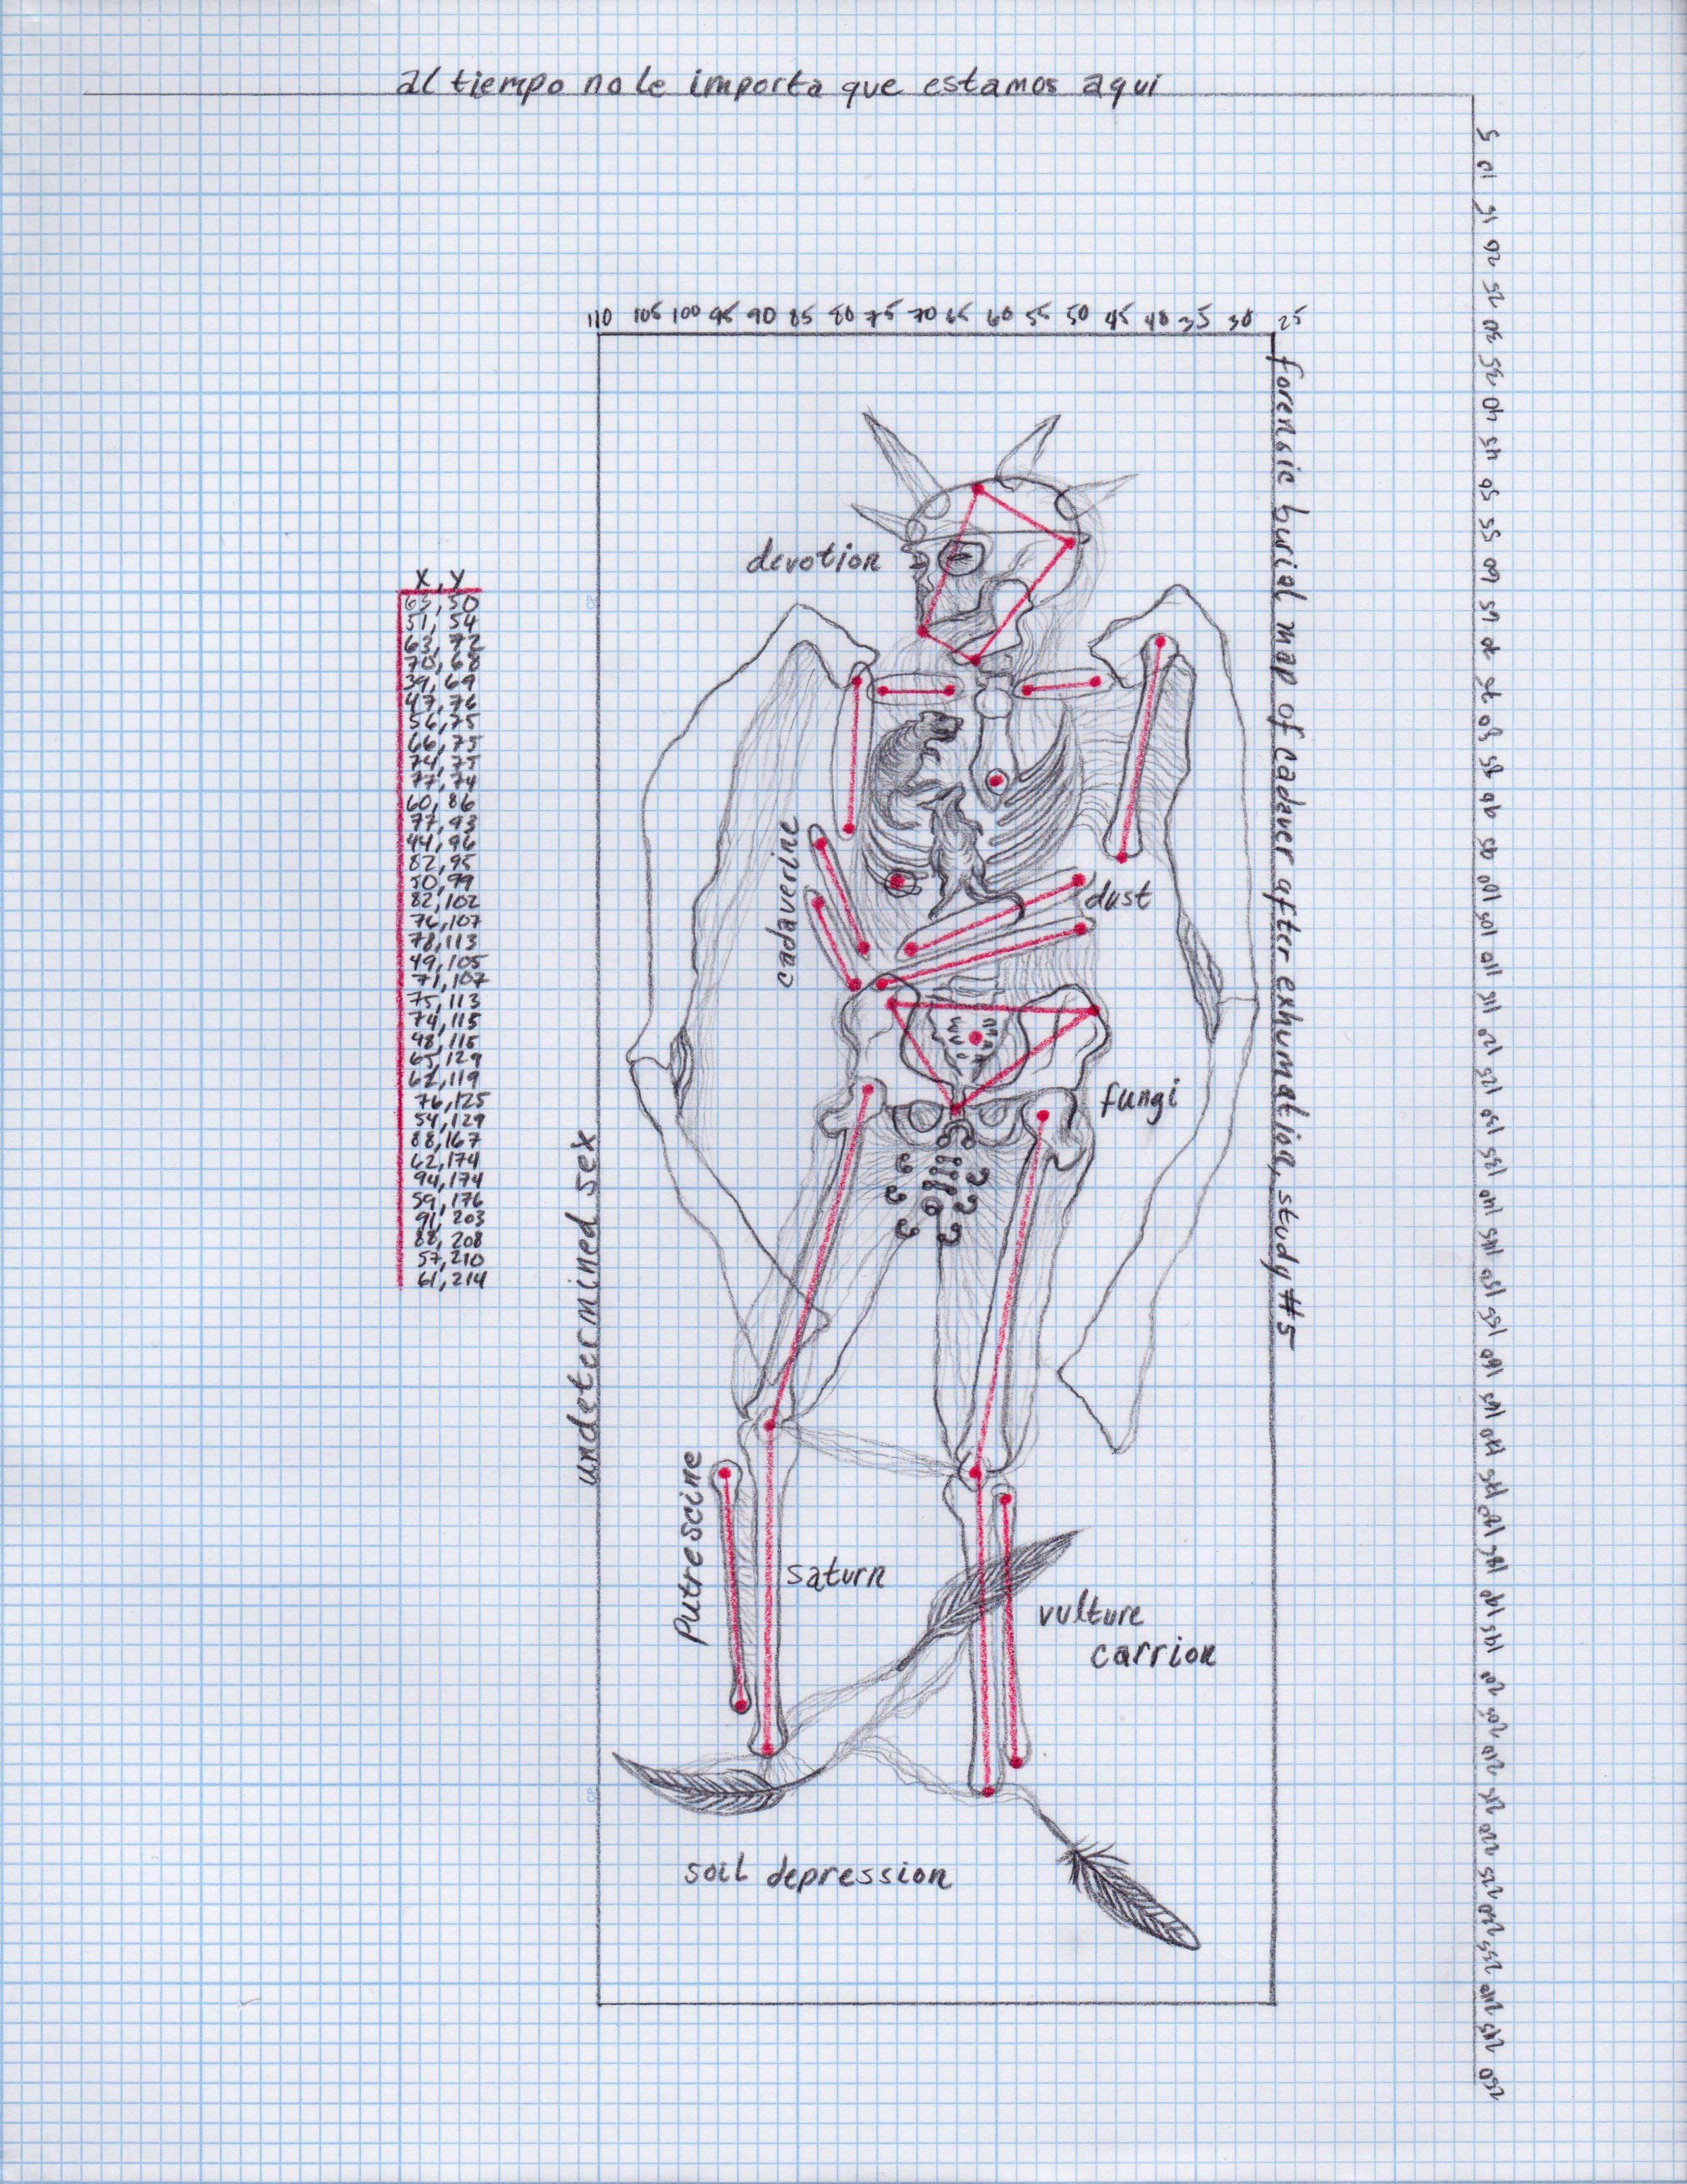 al tiempo no le importa que estamos aqui
5 10 15 20 25 30 35 40 45 50 55 60 65 70 75 80 85 90 95 100 105 110 115 120 125 130 135 140 145 150 155 160 165 170 175 180 185 190 195 200 205 210 215 220 225 230 235 240 245 250
110 105 100 95 90 85 80 75 70 65 60 55 50 45 40 35 30 25
forensic burial map of cadaver after exhumation, study #5
devotion
X, Y
63, 50
51, 54
63, 72
70, 68
39, 69
47, 76
56, 75
66, 75
74, 75
77, 74
60, 86
77, 93
44, 96
82, 95
50, 99
82, 102
76, 107
78, 113
49, 105
71, 107
75, 113
74, 115
48, 115
65, 129
62, 119
76, 125
54, 129
88, 167
62, 174
94, 174
59, 176
91, 203
88, 208
57, 210
61, 214
cadaverine
dust
fungi
undetermined sex
Putrescine
saturn
vulture
carrion
soil depression